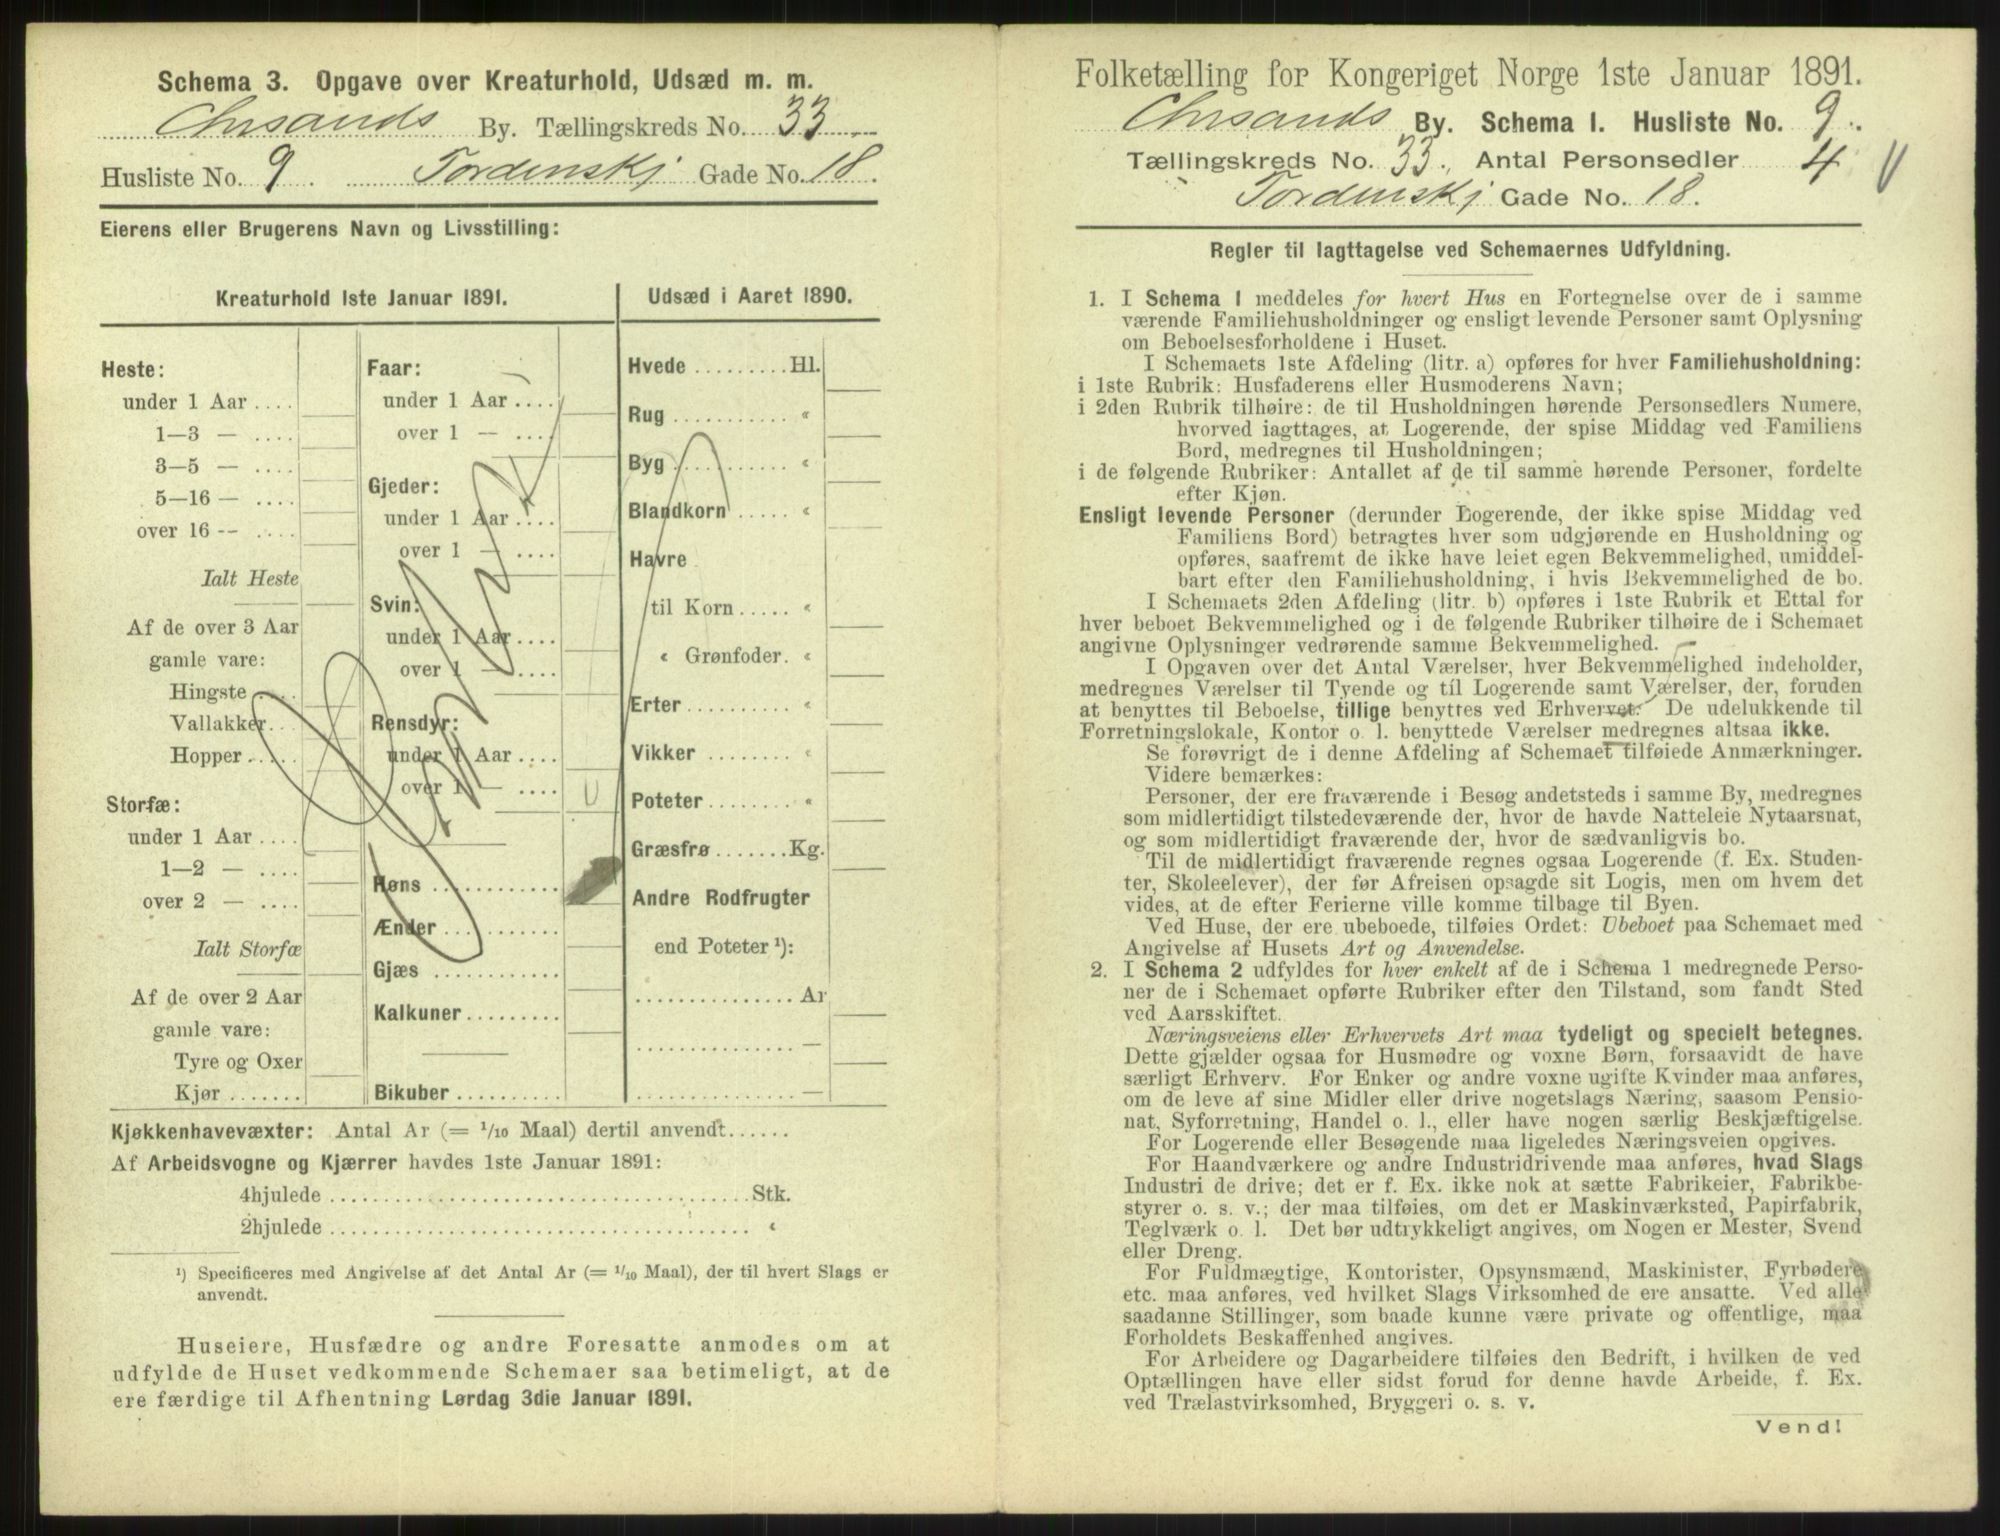 Schema 3. Opgave over Kreaturhold, Udsæd m. m.
Chrsands By. Tællingskreds No. 33
Husliste No. 9. Tordenskj Gade No. 18.
Eierens eller Brugerens Navn og Livsstilling:
Kreaturhold 1ste Januar 1891.
Heste:
under 1 Aar ....
1—3 — ....
3—5 — ....
5—16 — ....
over 16 — ....
Ialt Heste
Af de over 3 Aar
gamle vare:
Hingste ....
Vallakker..
Hopper .....
Storfæ:
under 1 Aar ....
1—2 — ....
over 2 — ....
Ialt Storfæ
Af de over 2 Aar
gamle vare:
Tyre og Oxer
Kjør .......
Faar:
under 1 Aar ....
over 1 — ....
Gjeder:
under 1 Aar ....
over 1 — ....
Svin:
under 1 Aar ....
over 1 — ....
Rensdyr:
under 1 Aar ....
over 1 — ....
Høns ............
Ænder ...........
Gjæs ............
Kalkuner.........
Bikuber ..........
Udsæd i Aaret 1890.
Hvede .........Hl.
Rug ........... «
Byg ........... «
Blandkorn ..... «
Havre
til Korn ..... «
« Grønfoder. «
Erter .......... «
Vikker ........ «
Poteter ........ «
Græsfrø .......Kg.
Andre Rodfrugter
end Poteter ¹):
............... Ar
............... —
............... —
Kjøkkenhavevæxter: Antal Ar (= 1/10 Maal) dertil anvendt......
Af Arbeidsvogne og Kjærrer havdes 1ste Januar 1891:
4hjulede ........................................Stk.
2hjulede ........................................ «
¹) Specificeres med Angivelse af det Antal Ar (= 1/10 Maal), der til hvert Slags er
anvendt.
Huseiere, Husfædre og andre Foresatte anmodes om at
udfylde de Huset vedkommende Schemaer saa betimeligt, at de
ere færdige til Afhentning Lørdag 3die Januar 1891.
Folketælling for Kongeriget Norge 1ste Januar 1891.
Chrsands By. Schema I. Husliste No. 9.
Tællingskreds No. 33. Antal Personsedler 4
Tordenskj Gade No. 18.
Regler til Iagttagelse ved Schemaernes Udfyldning.
1. I Schema 1 meddeles for hvert Hus en Fortegnelse over de i samme
værende Familiehusholdninger og ensligt levende Personer samt Oplysning
om Beboelsesforholdene i Huset.
I Schemaets 1ste Afdeling (litr. a) opføres for hver Familiehusholdning:
i 1ste Rubrik: Husfaderens eller Husmoderens Navn;
i 2den Rubrik tilhøire: de til Husholdningen hørende Personsedlers Numere,
hvorved iagttages, at Logerende, der spise Middag ved Familiens
Bord, medregnes til Husholdningen;
i de følgende Rubriker: Antallet af de til samme hørende Personer, fordelte
efter Kjøn.
Ensligt levende Personer (derunder Logerende, der ikke spise Middag ved
Familiens Bord) betragtes hver som udgjørende en Husholdning og
opføres, saafremt de ikke have leiet egen Bekvemmelighed, umiddel-
bart efter den Familiehusholdning, i hvis Bekvemmelighed de bo.
I Schemaets 2den Afdeling (litr. b) opføres i 1ste Rubrik et Ettal for
hver beboet Bekvemmelighed og i de følgende Rubriker tilhøire de i Schemaet
angivne Oplysninger vedrørende samme Bekvemmelighed.
I Opgaven over det Antal Værelser, hver Bekvemmelighed indeholder,
medregnes Værelser til Tyende og til Logerende samt Værelser, der, foruden
at benyttes til Beboelse, tillige benyttes ved Erhvervet. De udelukkende til
Forretningslokale, Kontor o. l. benyttede Værelser medregnes altsaa ikke.
Se forøvrigt de i denne Afdeling af Schemaet tilføiede Anmærkninger.
Videre bemærkes:
Personer, der ere fraværende i Besøg andetsteds i samme By, medregnes
som midlertidigt tilstedeværende der, hvor de havde Natteleie Nytaarsnat,
og som midlertidigt fraværende der, hvor de sædvanligvis bo.
Til de midlertidigt fraværende regnes ogsaa Logerende (f. Ex. Studen-
ter, Skoleelever), der før Afreisen opsagde sit Logis, men om hvem det
vides, at de efter Ferierne ville komme tilbage til Byen.
Ved Huse, der ere ubeboede, tilføies Ordet: Ubeboet paa Schemaet med
Angivelse af Husets Art og Anvendelse.
2. I Schema 2 udfyldes for hver enkelt af de i Schema 1 medregnede Perso-
ner de i Schemaet opførte Rubriker efter den Tilstand, som fandt Sted
ved Aarsskiftet.
Næringsveiens eller Erhvervets Art maa tydeligt og specielt betegnes.
Dette gjælder ogsaa for Husmødre og voxne Børn, forsaavidt de have
særligt Erhverv. For Enker og andre voxne ugifte Kvinder maa anføres,
om de leve af sine Midler eller drive nogetslags Næring, saasom Pensio-
nat, Syforretning, Handel o. l., eller have nogen særlig Beskjæftigelse.
For Logerende eller Besøgende maa ligeledes Næringsveien opgives.
For Haandværkere og andre Industridrivende maa anføres, hvad Slags
Industri de drive; det er f. Ex. ikke nok at sætte Fabrikeier, Fabrikbe-
styrer o. s. v.; der maa tilføies, om det er Maskinværksted, Papirfabrik,
Teglværk o. l. Det bør udtrykkeligt angives, om Nogen er Mester, Svend
eller Dreng.
For Fuldmægtige, Kontorister, Opsynsmænd, Maskinister, Fyrbødere
etc. maa anføres, ved hvilket Slags Virksomhed de ere ansatte. Ved alle
saadanne Stillinger, som baade kunne være private og offentlige, maa
Forholdets Beskaffenhed angives.
For Arbeidere og Dagarbeidere tilføies den Bedrift, i hvilken de ved
Optællingen have eller sidst forud for denne havde Arbeide, f. Ex.
ved Trælastvirksomhed, Bryggeri o. s. v.
Vend!